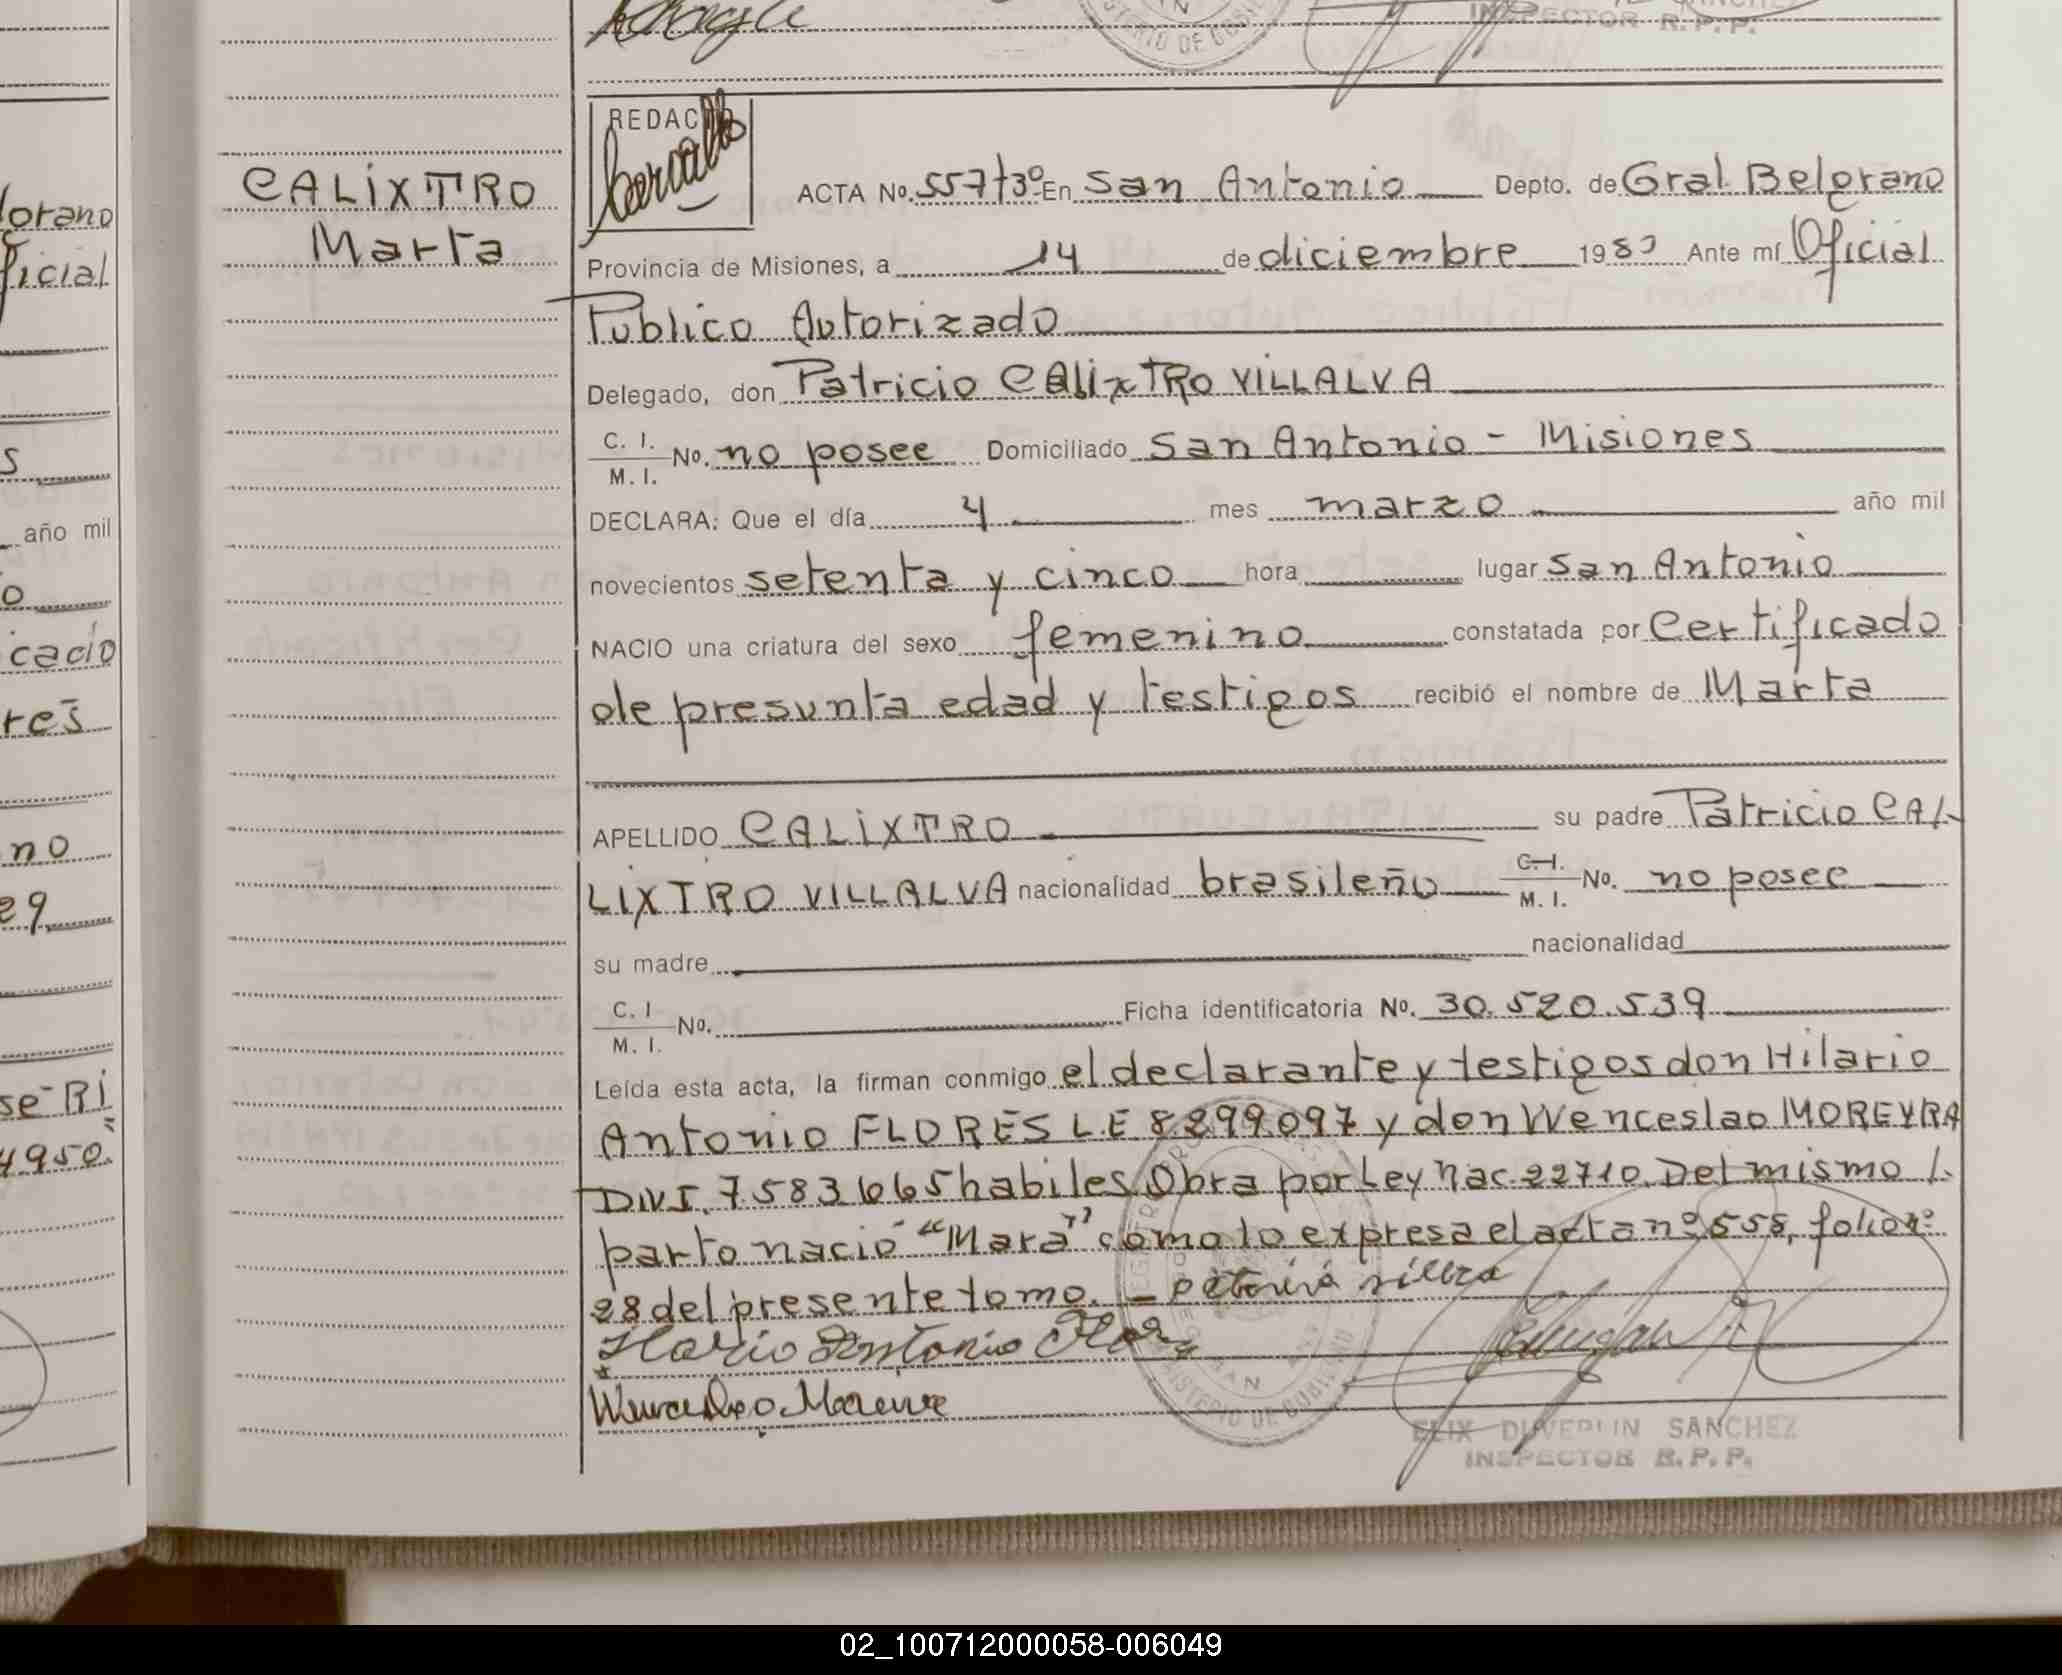 INSPECTOR R.P.P.
CALIXTRO
Marta
lorano
ficial
s
año mil
o
cado
res
no
29
se RI
4950.
REDAC
ACTA No. 557 t3º En San Antonio Depto. de Gral. Belgrano
Provincia de Misiones, a 14 de diciembre 1983 Ante mí Oficial
Publico Autorizado
Delegado, don Patricio CALIXTRO VILLALVA
C. I.
M. I. No. no posee Domiciliado San Antonio - Misiones
DECLARA: Que el día 4 mes marzo año mil
novecientos setenta y cinco hora lugar San Antonio
NACIO una criatura del sexo femenino constatada por Certificado
de presunta edad y testigos recibió el nombre de Marta
APELLIDO CALIXTRO su padre Patricio CA/-
LIXTRO VILLALVA nacionalidad brasileño C.I.
M. I. No. no posee
su madre nacionalidad
C. I
M. I. No. Ficha identificatoria No. 30.520.539
Leída esta acta, la firman conmigo el declarante y testigos don Hilario
Antonio FLORES L.E 8299.097 y don Wenceslao MOREYRA
DNI. 7583665 habiles. Obra por Ley Nac. 22710. Del mismo /.
parto nació "Mara" como lo expresa el acta nº 558, folio nº
28 del presente tomo.
Antonio
MINISTERIO DE GOBIERNO
DUVERLIN SANCHEZ
INSPECTOR R.P.P.
02_100712000058-006049